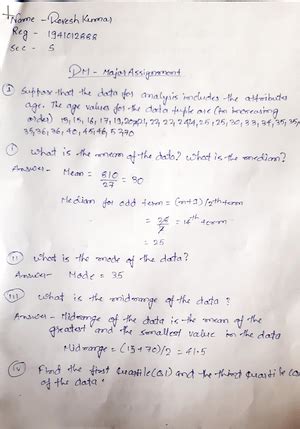 Name - Devesh Kumar
Reg - 1941012888
Sec - S
DM - Major Assignment
① Suppose that the data for analysis includes the attributes
age. The age values for the data tuple are (in increasing
order) 13, 15, 16, 17, 19, 20, 21, 22, 22, 24, 25, 25, 30, 33, 34, 35, 35,
35, 36, 36, 40, 45, 46, 52, 70
(i) What is the mean of the data? What is the median?
Answer - Mean = 810/27 = 30
Median for odd term = (n+1)/2th term
= 28/2 = 14th term
= 25
(ii) What is the mode of the data?
Answer - Mode = 35
(iii) What is the midrange of the data ?
Answer - Midrange of the data is the mean of the
greatest and the smallest value in the data
Midrange = (13+70)/2 = 41.5
(iv) Find the first Quartile (Q1) and the third Quartile
of the data.